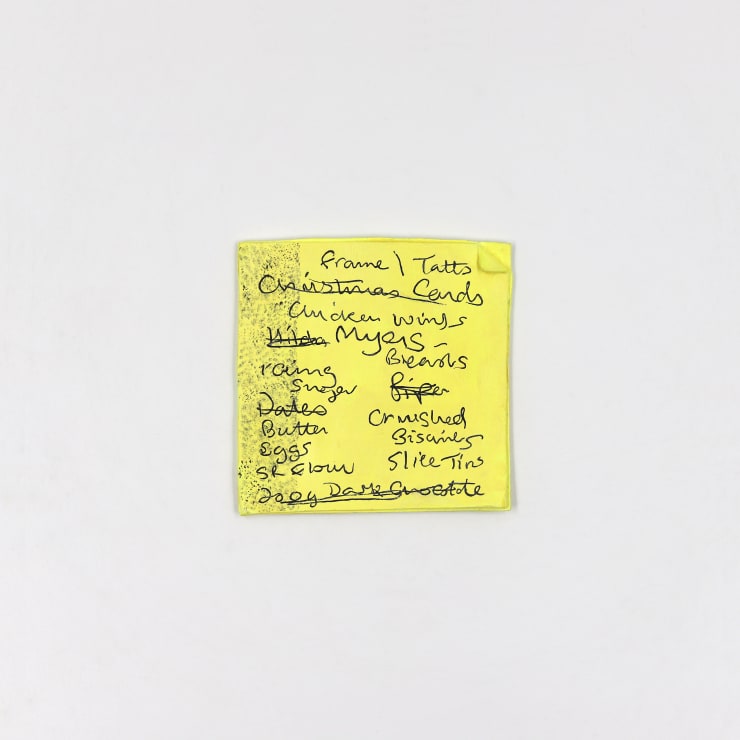 Frame \ Tatts
Christmas Cards
Chicken wings
Hilda Myers -
Breasts
Sugar
Dates
Butter
Crushed
Biscuits
Eggs
SR Flour
Slice Tins
200g Dark Chocolate